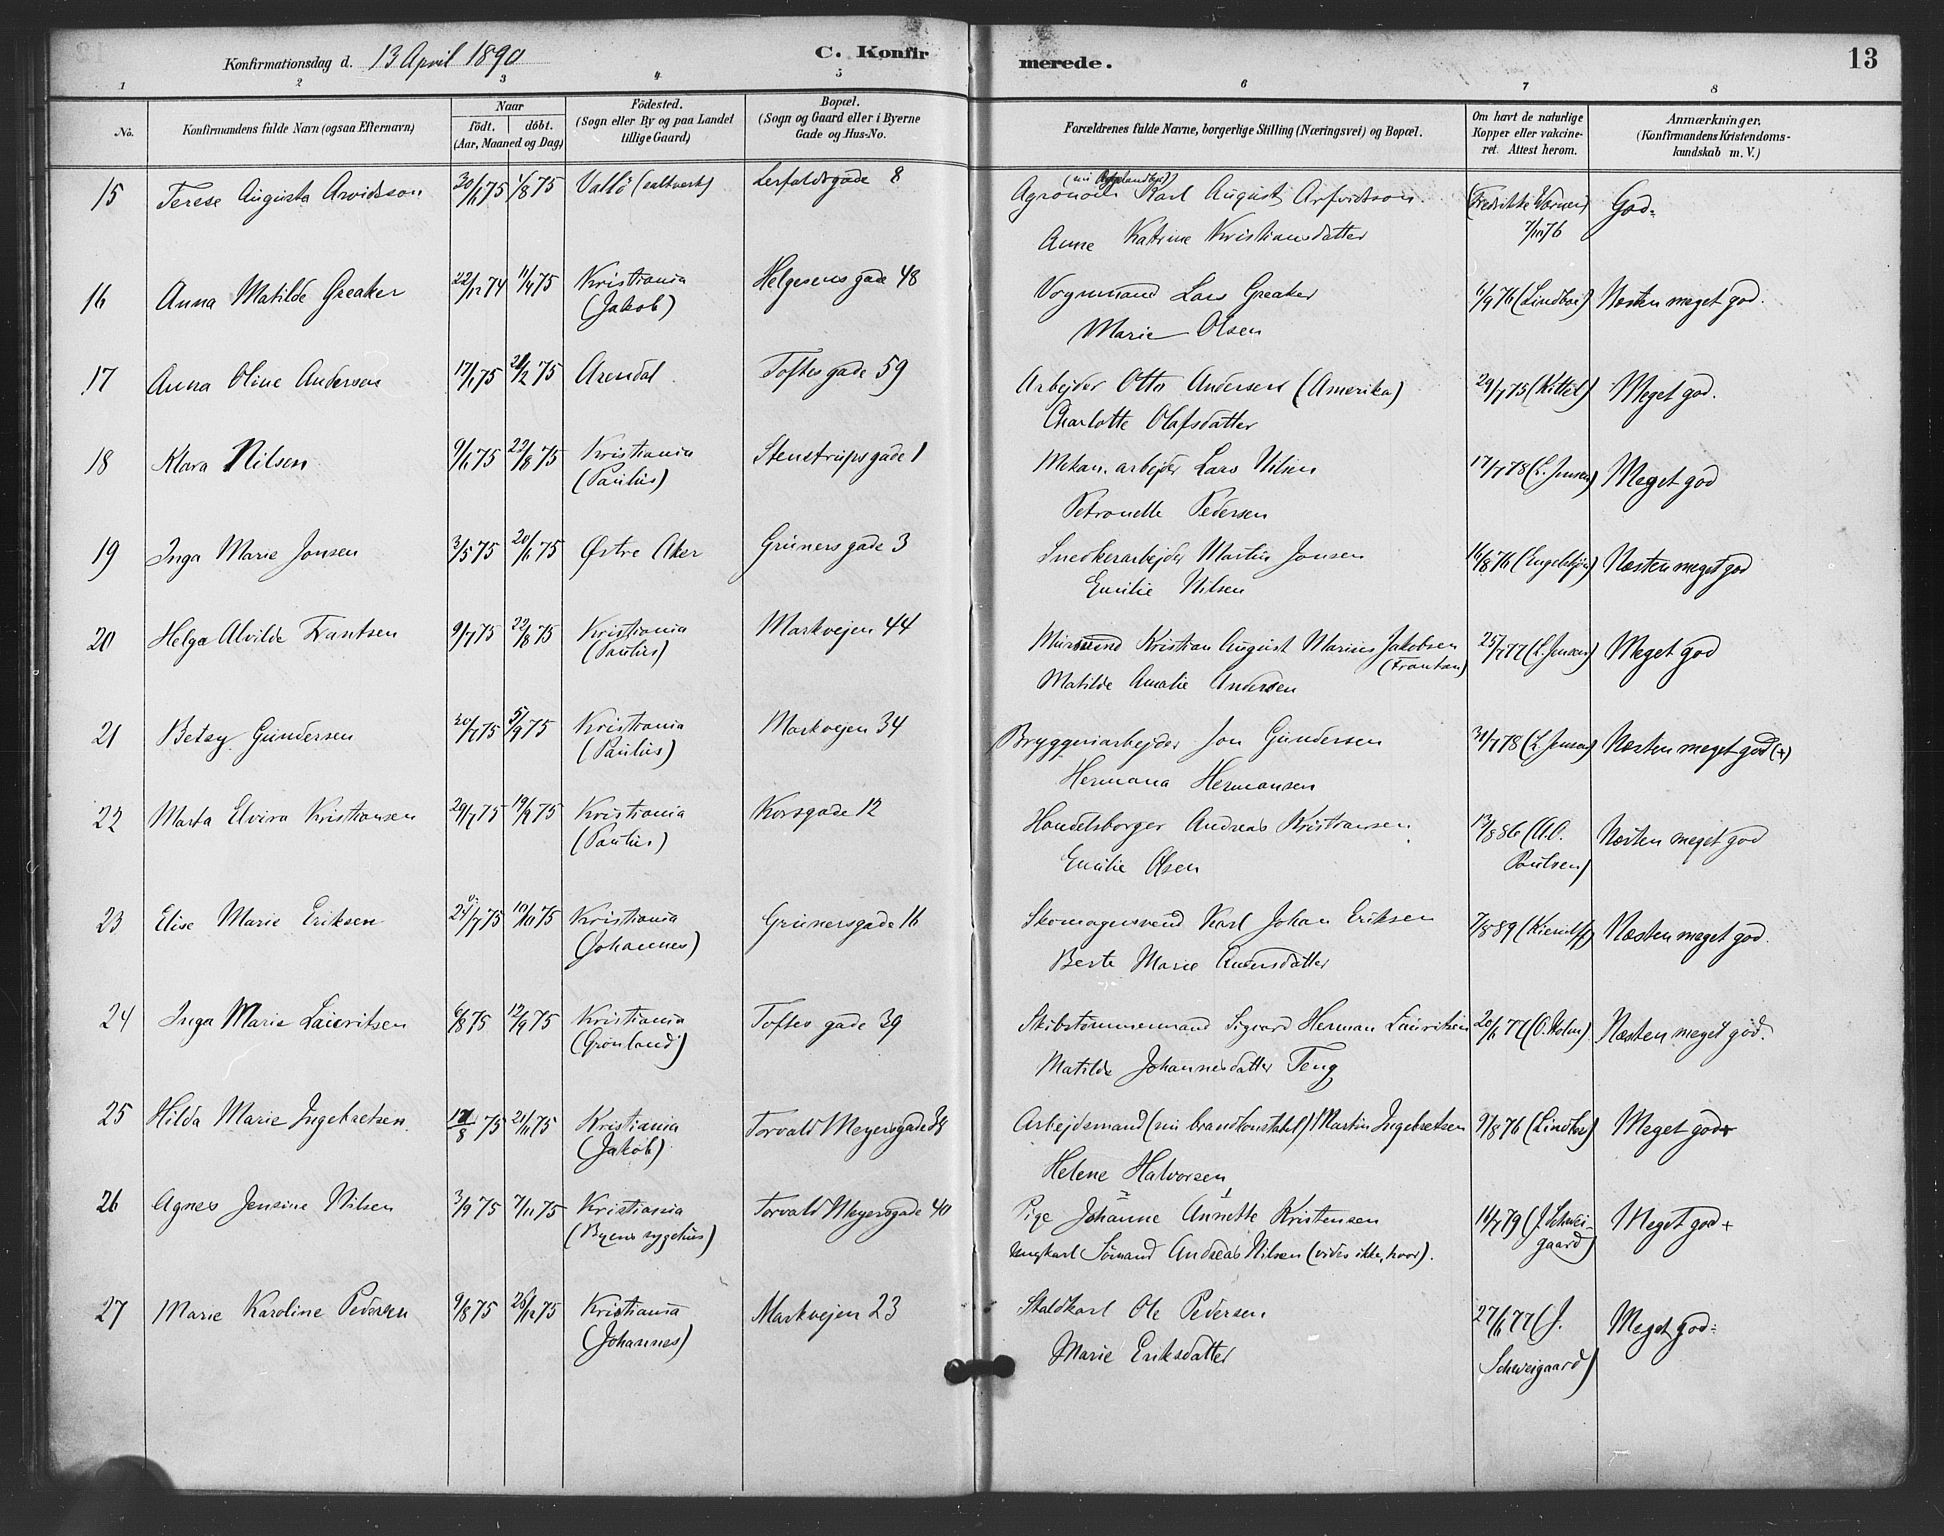 Konfirmationsdag d. 13 April 1890
C. Konfirmerede.
13
1 2 3 4 5 6 7 8
No.
Konfirmandens fulde Navn (ogsaa Efternavn)
Naar
födt. döbt.
(Aar, Maaned og Dag)
Födested.
(Sogn eller By og paa Landet
tillige Gaard)
Bopæl.
(Sogn og Gaard eller i Byerne
Gade og Hus-No.
Forældrenes fulde Navne, borgerlige Stilling (Næringsvei) og Bopæl.
Om havt de naturlige
Kopper eller vakcine-
ret. Attest herom.
Anmærkninger,
(Konfirmandens Kristendoms-
kundskab m. V.)
15 Terese Augusta Arvidsson 30/6 75 1/8 75 Vallö (saltverk) Lerfaldsgade 8
Agronom Karl August Arfvidtson (Fredrikke Værner) God-
Anne Katrine Kristiansdatter 7/11 76
16 Anna Matilde Greaker 22/12 74 11/4 75 Kristiania Helgesensgade 48
(Jakob)
Vognmand Lars Greaker 6/9 76 (Lindboe) Næsten meget god.
Marie Olsen
17 Anna Oline Andersen 17/1 75 21/2 75 Arendal Toftesgade 59
Arbejder Otto Andersen (Amerika) 29/7 75 (Kittil) Meget god.
Charlotte Olafsdatter
18 Klara Nilsen 9/6 75 22/8 75 Kristiania Stenstrupsgade 1
(Paulus)
Mekan. arbejder Lars Nilsen 17/7 78 (L. Jensen) Meget god
Petronelle Pedersen
19 Inga Marie Jonsen 3/5 75 20/6 75 Østre Aker Grünersgade 3
Snedkerarbejder Martin Jonsen 16/8 76 (Engelskjøn) Næsten meget god
Emilie Nilsen
20 Helga Alvilde Frantsen 9/7 75 22/8 75 Kristiania Markvejen 44
(Paulus)
Mursvend Kristian August Marius Jakobsen 25/7 77 (L. Jensen) Meget god
(Frantsen)
Matilde Amalie Andersen
21 Betsy Gundersen 20/7 75 5/9 75 Kristiania Markvejen 34
(Paulus)
Bryggeriarbejder Jon Gundersen 31/7 78 (L. Jensen) Næsten meget god (+)
Hermana Hermansen
22 Marta Elvira Kristiansen 29/7 75 19/9 75 Kristiania Korsgade 12
(Paulus)
Handelsborger Andreas Kristiansen 13/8 86 (A.O. Næsten meget god
Emilie Olsen Paulsen)
23 Elise Marie Eriksen 24/7 75 10/10 75 Kristiania Grünersgade 16
(Johannes)
Skomagersvend Karl Johan Eriksen 7/8 89 (Kierulf) Næsten meget god.
Berte Marie Andersdatter
24 Inga Marie Lauritsen 6/8 75 12/9 75 Kristiania Toftes gade 39
(Grønland)
Skibstømmermand Sigvard Herman Lauritsen 20/6 77 (O. Holm) Næsten meget god.
Matilde Johannesdatter Teng
25 Hilda Marie Ingebretsen 17/8 75 21/11 75 Kristiania Torvald Meyersgade 34
(Jakob)
Arbejdsmand (nu brandkonstabel) Martin Ingebretsen 9/8 76 (Lindboe) Meget god+
Helene Halvorsen
26 Agnes Jensine Nilsen 3/9 75 7/11 75 Kristiania Torvald Meyersgade 40
(Byens sygehus)
Pige Johanne Annette Kristensen 16/7 79 (J. Schwei- Meget god +
Ungkarl Sømand Andreas Nilsen (vides ikke, hvor). gaard)
27 Marie Karoline Pedersen 9/8 75 26/12 75 Kristiania Markvejen 23
(Johannes)
Staldkarl Ole Pedersen 27/6 77 (J. Meget god-
Marie Eriksdatter Schweigaard)